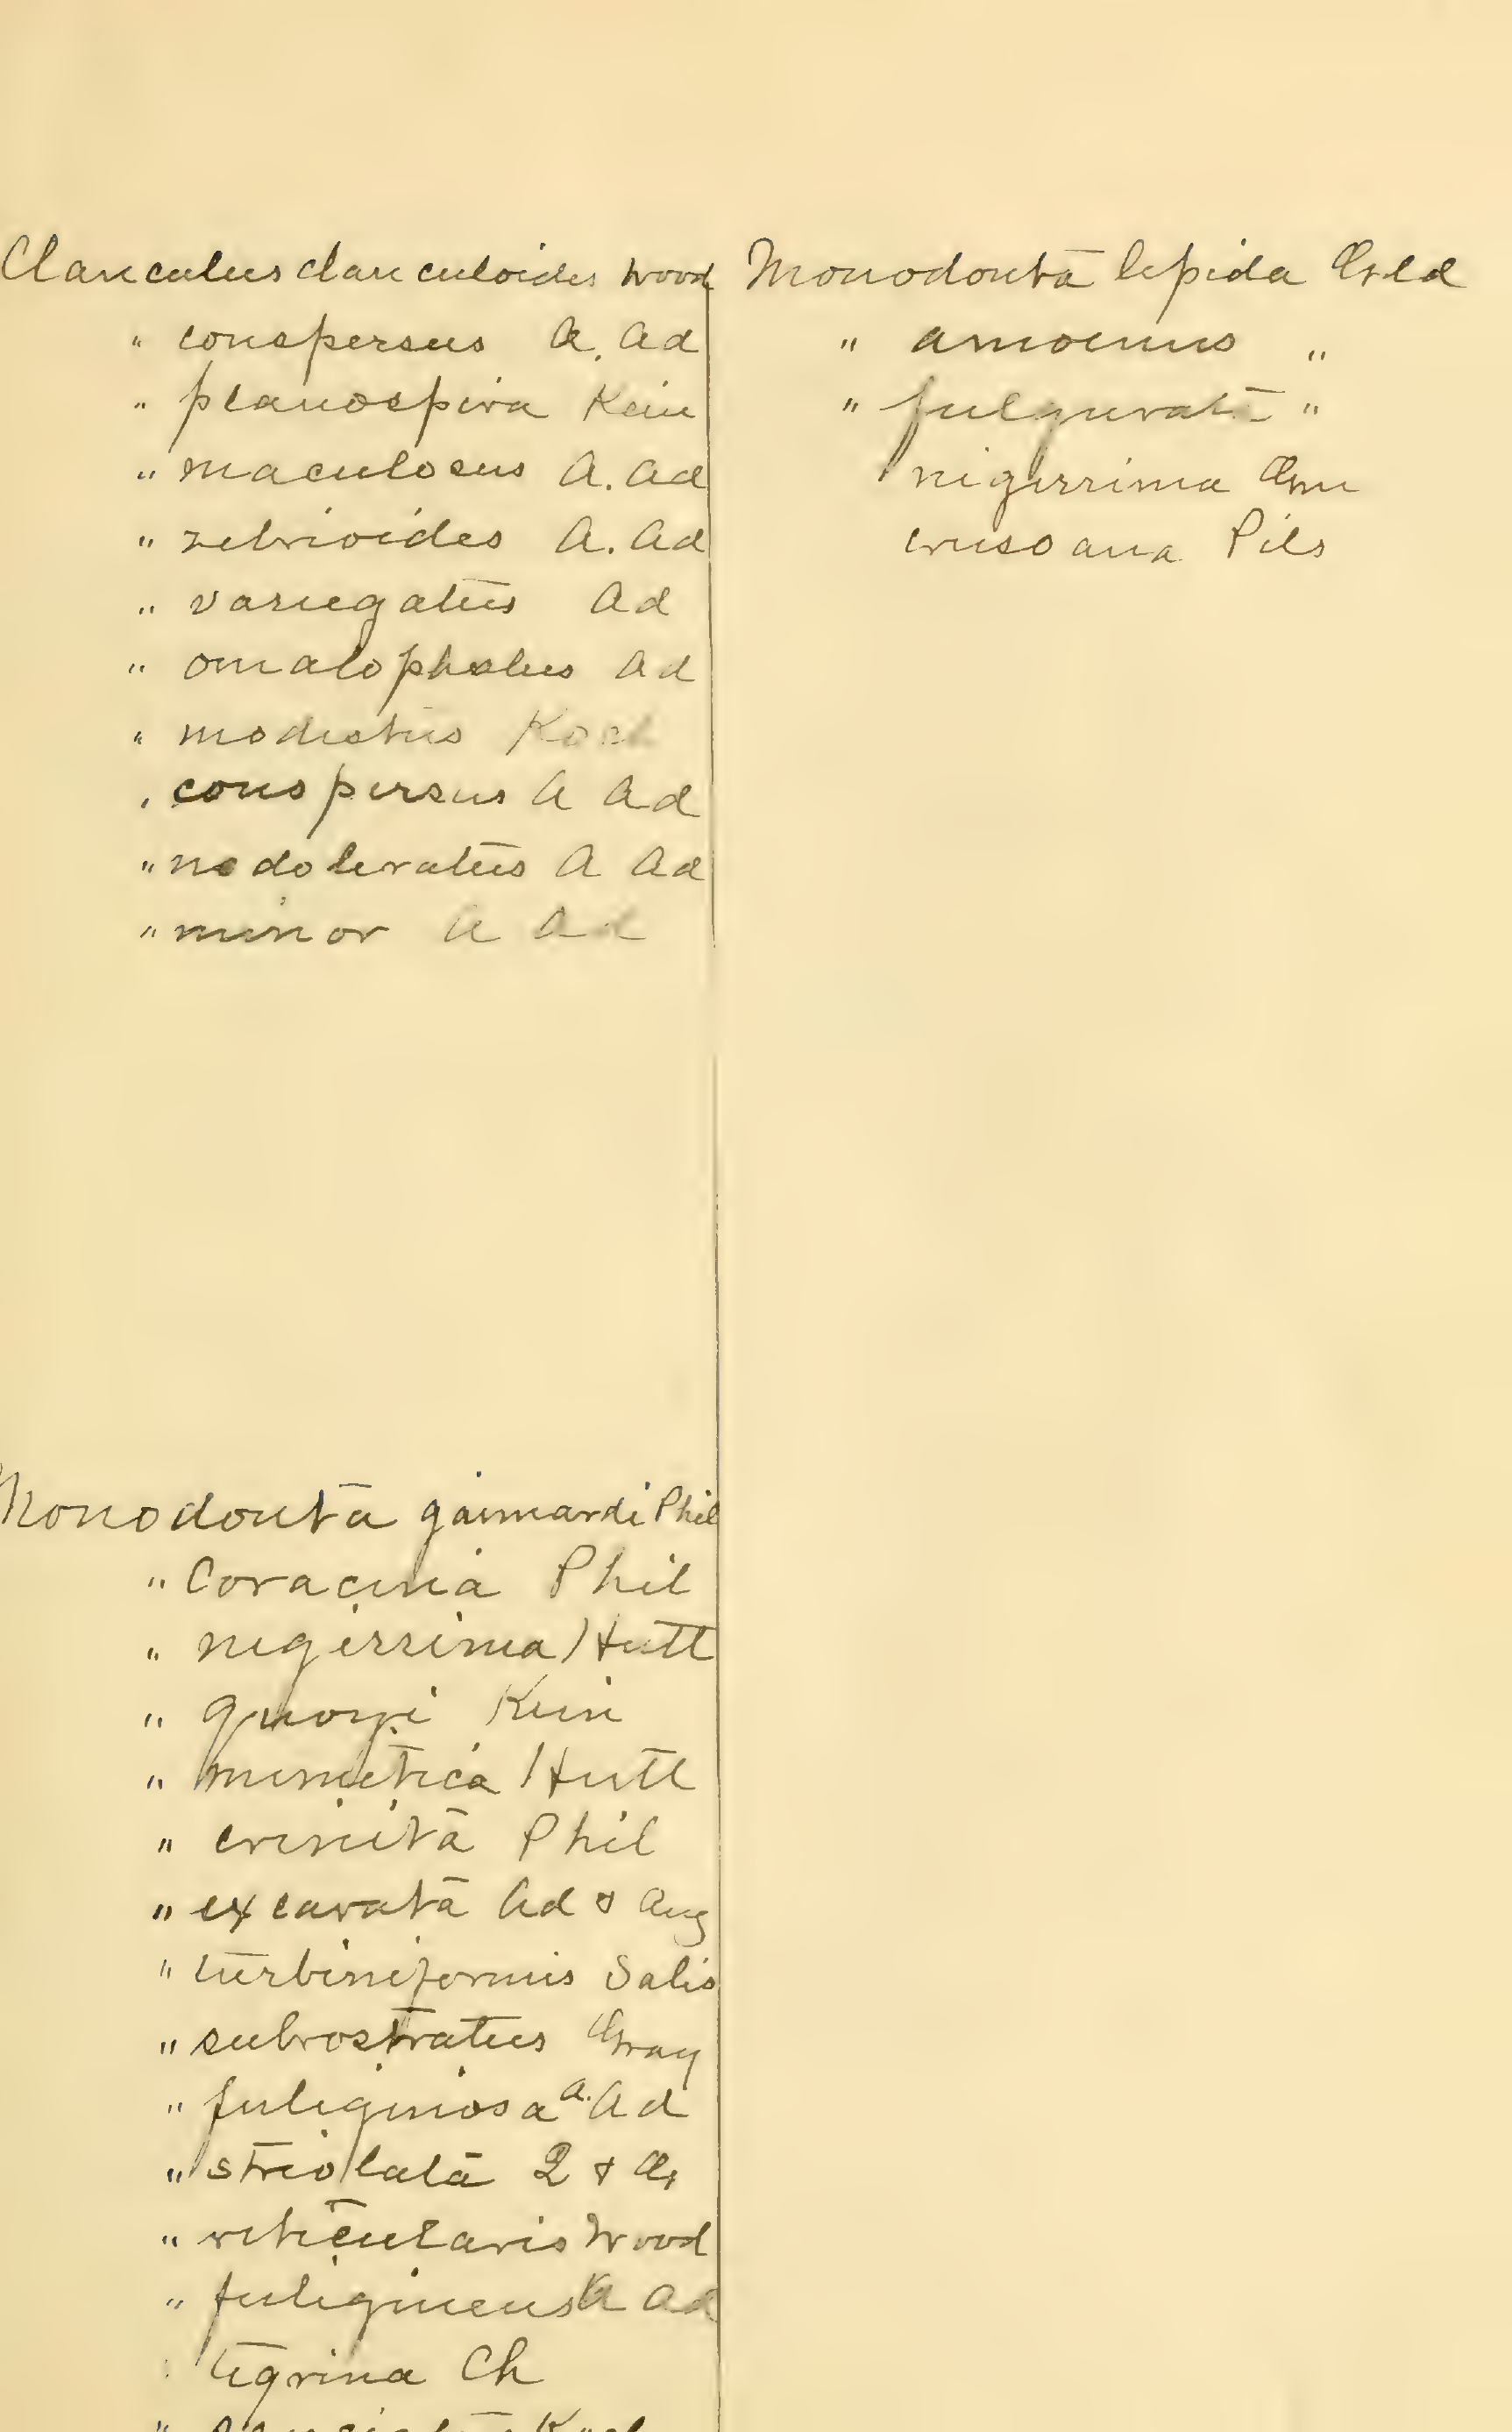 Clanculus clanculoides Wood
" conspersus A. Ad
" planospira Kein
" maculosus A. Ad
" zebrioides A. Ad
" variegatus Ad
" omalophalus Ad
" modestus Koch
" conspersus A Ad
" nodoleratus A Ad
" minor A Ad
Monodonta gaimardi Phil
" Coracina Phil
" nigerrima Hutt
" quoyi Kein
" mimetica Hutt
" crinita Phil
" excavata Ad & Ang
" turbiniformis Salis
" subrostratus Gray
" fuliginosa A. Ad
" striolata Q & G
" reticularis Wood
" fuligineus A Ad
" tigrina Ch
Monodonta lepida Gld
" amoenus "
" fulgurata "
nigerrima Gm
crusoana Pils